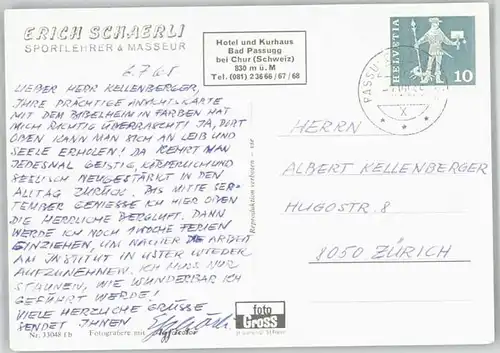 ERICH SCHAERLI
SPORTLEHRER & MASSEUR
6.7.68
Hotel und Kurhaus
Bad Passugg
bei Chur (Schweiz)
830 m ü. M
Tel. (081) 2 36 66 / 67 / 68
HELVETIA
10
PASSU
X
LIEBER HERR KELLENBERGER,
IHRE PRÄCHTIGE ANSICHTSKARTE
MIT DEM BIBELHEIM IN FARBEN HAT
MICH RICHTIG ÜBERRASCHT! JA, DORT
OBEN KANN MAN SICH AN LEIB UND
SEELE ERHOLEN! DA KEHRT MAN
JEDESMAL GEISTIG, KÖRPERLICH UND
SEELISCH NEUGESTÄRKT IN DEN
ALLTAG ZURÜCK. BIS MITTE SEP-
TEMBER GENIESSE ICH HIER OBEN
DIE HERRLICHE BERGLUFT. DANN
WERDE ICH NOCH 1 WOCHE FERIEN
EINZIEHEN, UM NACHER DIE ARBEIT
AM INSTITUT IN USTER WIEDER
AUFZUNEHMEN. ICH MUSS NUR
STAUNEN, WIE WUNDERBAR ICH
GEFÜHRT WERDE!
VIELE HERZLICHE GRÜSSE
SENDET IHNEN
Reproduktion verboten
HERRN
ALBERT KELLENBERGER
HUGOSTR. 8
8050 ZÜRICH
Nr. 33048 fb
Fotografiere mit Agfacolor
foto
Gross